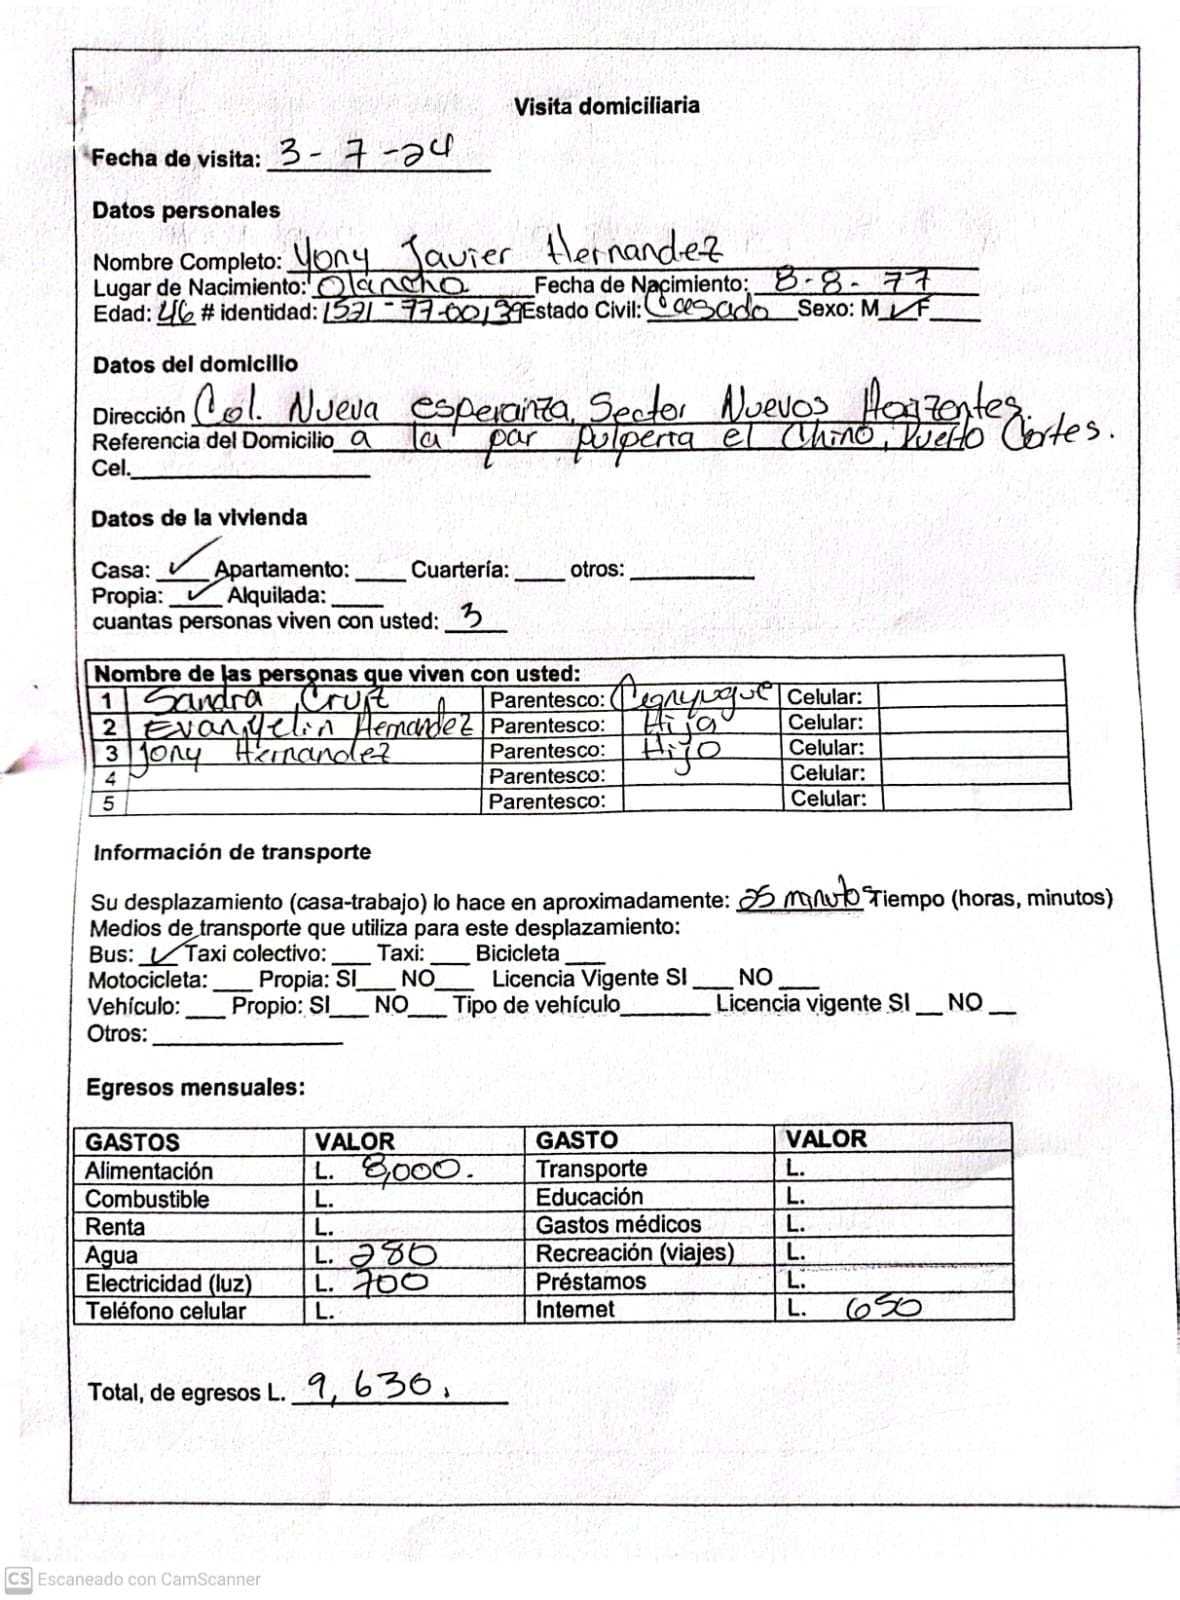 Visita domiciliaria
Fecha de visita: 3-7-24
Datos personales
Nombre Completo: Yony Javier Hernandez
Lugar de Nacimiento: Olancho Fecha de Nacimiento: 8-8-77
Edad: 46 # identidad: 1521-77-00139 Estado Civil: Casado Sexo: M ✓ F
Datos del domicilio
Dirección Col. Nueva esperanza, Sector Nuevos Horizontes.
Referencia del Domicilio a la par pulperia el Chino, Puerto Cortes.
Cel.
Datos de la vivienda
Casa: ✓ Apartamento: Cuartería: otros:
Propia: ✓ Alquilada:
cuantas personas viven con usted: 3
Nombre de las personas que viven con usted:
1 Sandra Cruz Parentesco: Celular:
2 Evangelin Hernandez Parentesco: Hija Celular:
3 Jony Hernandez Parentesco: Hijo Celular:
4 Parentesco: Celular:
5 Parentesco: Celular:
Información de transporte
Su desplazamiento (casa-trabajo) lo hace en aproximadamente: 25 minutos Tiempo (horas, minutos)
Medios de transporte que utiliza para este desplazamiento:
Bus: ✓ Taxi colectivo: Taxi: Bicicleta
Motocicleta: Propia: SI NO Licencia Vigente SI NO
Vehículo: Propio: SI NO Tipo de vehículo Licencia vigente SI NO
Otros:
Egresos mensuales:
GASTOS VALOR GASTO VALOR
Alimentación L. 8,000. Transporte L.
Combustible L. Educación L.
Renta L. Gastos médicos L.
Agua L. 280 Recreación (viajes) L.
Electricidad (luz) L. 700 Préstamos L.
Teléfono celular L. Internet L. 650
Total, de egresos L. 9,630.
CS Escaneado con CamScanner